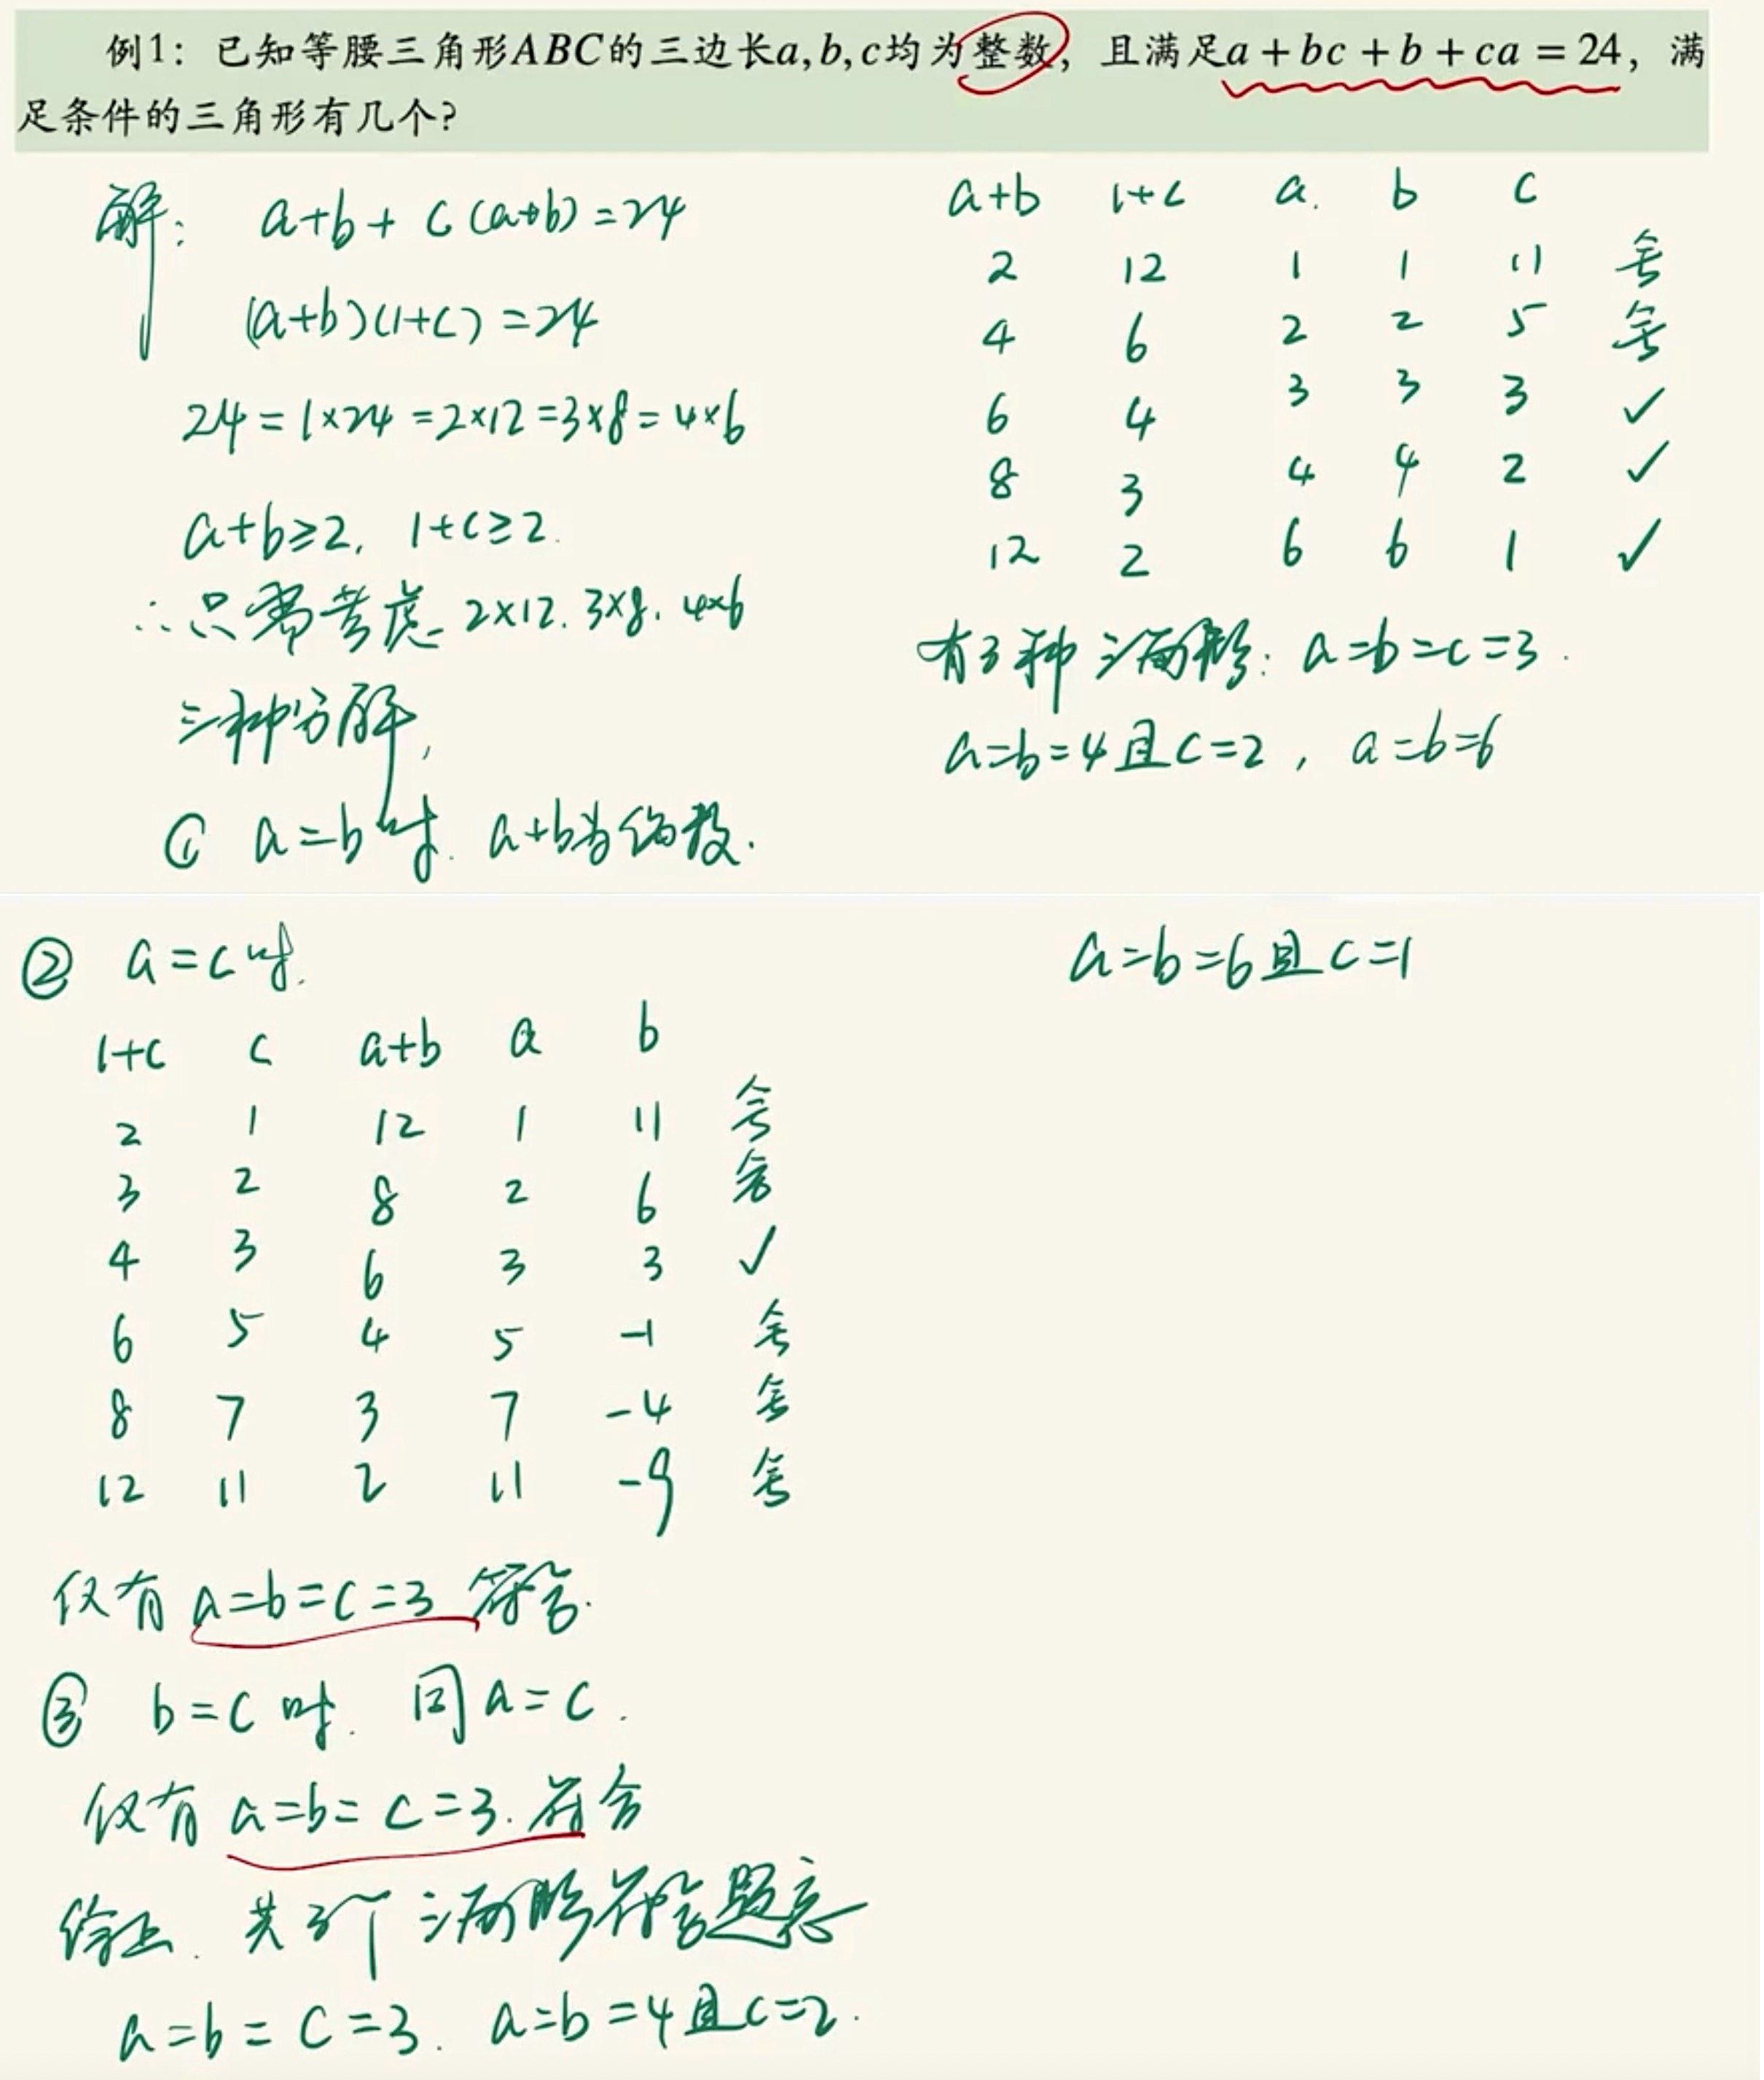 例1：已知等腰三角形ABC的三边长a,b,c均为整数，且满足a+bc+b+ca=24，满
足条件的三角形有几个?
解： a+b+c(a+b)=24
(a+b)(1+c)=24
24=1×24=2×12=3×8=4×6
a+b≥2, 1+c≥2.
∴只需考虑 2×12. 3×8. 4×6
三种分解,
① a=b时. a+b为偶数.
a+b 1+c a. b c
2 12 1 1 11 舍
4 6 2 2 5 舍
6 4 3 3 3 ✓
8 3 4 4 2 ✓
12 2 6 6 1 ✓
有3种三角形: a=b=c=3.
a=b=4且c=2, a=b=6
② a=c时.
1+c c a+b a b
2 1 12 1 11 舍
3 2 8 2 6 舍
4 3 6 3 3 ✓
6 5 4 5 -1 舍
8 7 3 7 -4 舍
12 11 2 11 -9 舍
仅有 a=b=c=3 符合.
③ b=c时. 同a=c.
仅有 a=b=c=3. 符合
综上. 共3个三角形符合题意
a=b=c=3. a=b=4且c=2.
a=b=6且c=1